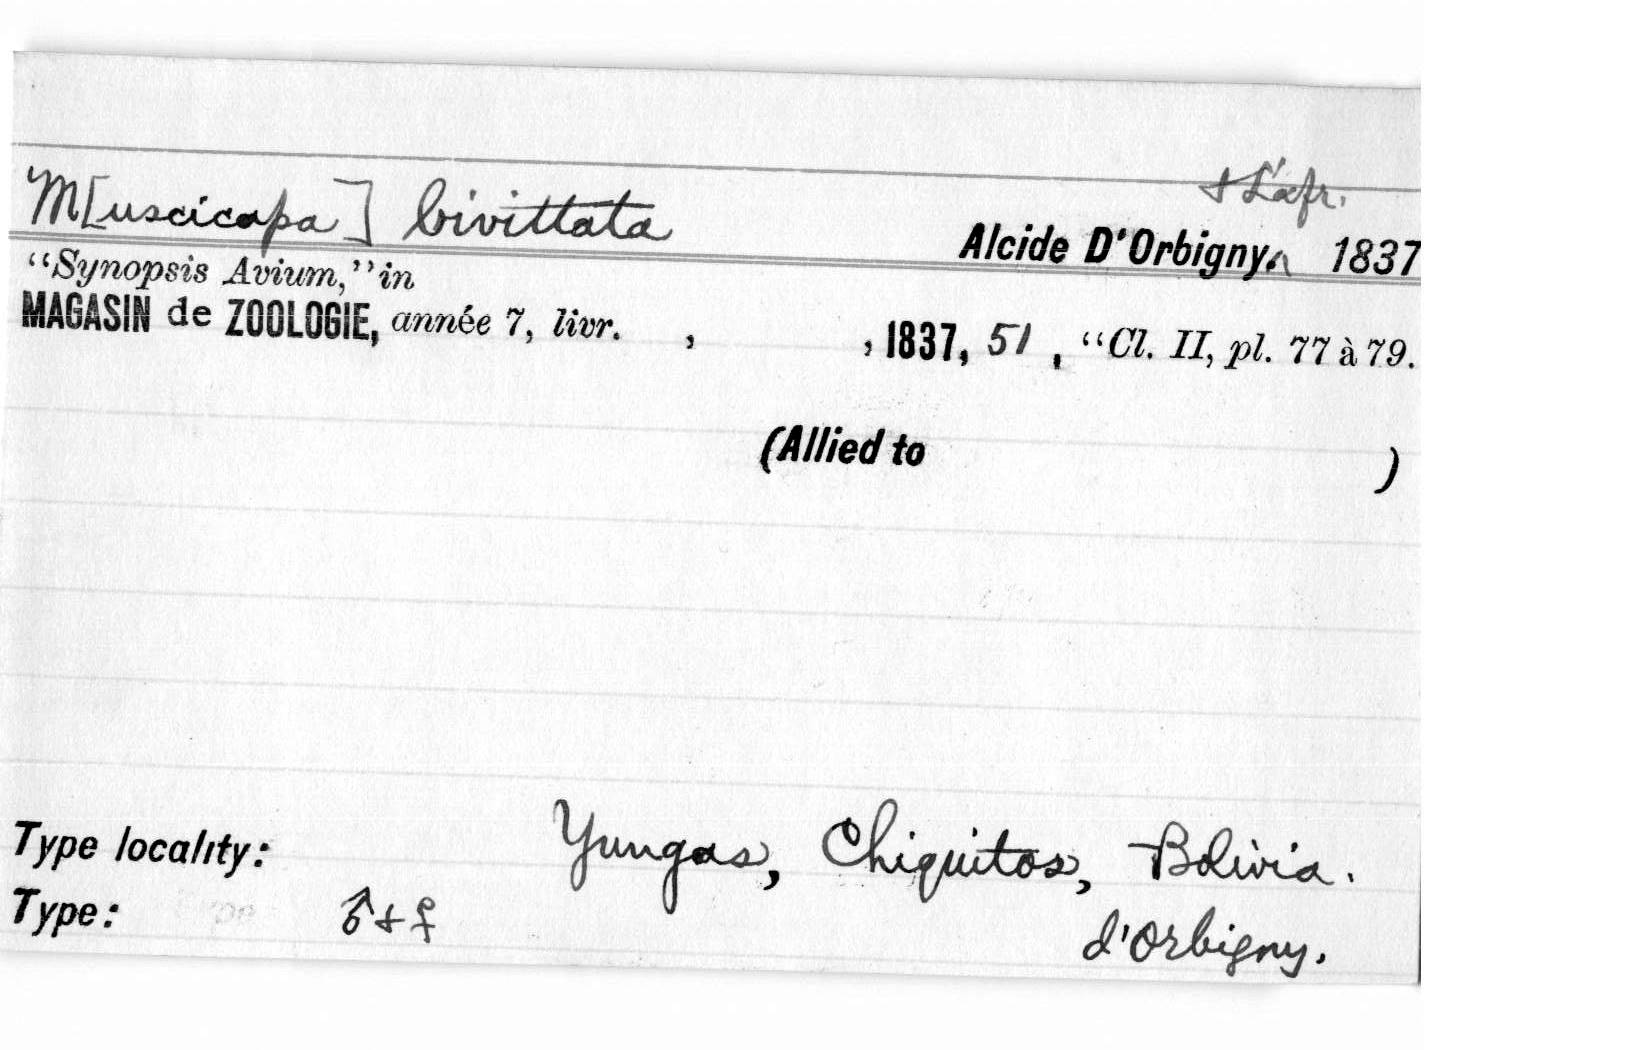 & Lafr.
M[uscicapa] bivittata Alcide D'Orbigny. 1837
"Synopsis Avium," in
MAGASIN de ZOOLOGIE, année 7, livr. , , 1837, 51 , "Cl. II, pl. 77 à 79.
(Allied to )
Type locality: Yungas, Chiquitos, Bolivia.
Type: ♂ & ♀ d'Orbigny.